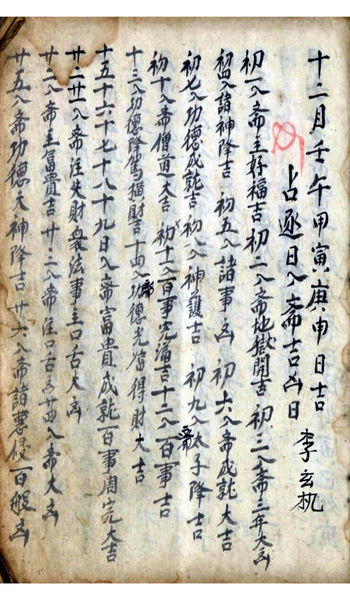 十二月壬午甲寅庚申日吉
占逐日入斋吉凶日 李玄
初一入斋主好福吉 初二入斋地獄開吉 初三入斋三年大凶
初四入諸神降吉 初五入諸事凶 初六入斋成就大吉
初七入功德成就吉 初八入神護吉 初九入斋太子降吉
初十入斋僧道大吉 初十一入百事完滿吉 十二入百事吉
十三入功德降 財吉 十四入功德 得財大吉
十五十六十七十八十九日入斋富貴成就百事周完大吉
廿廿一入斋注失財衆法事主口舌大凶
廿二入斋主富貴吉 廿三入斋注口舌凶 廿四入斋大凶
廿五入斋功德天神降吉 廿六入斋諸惡侵百般凶